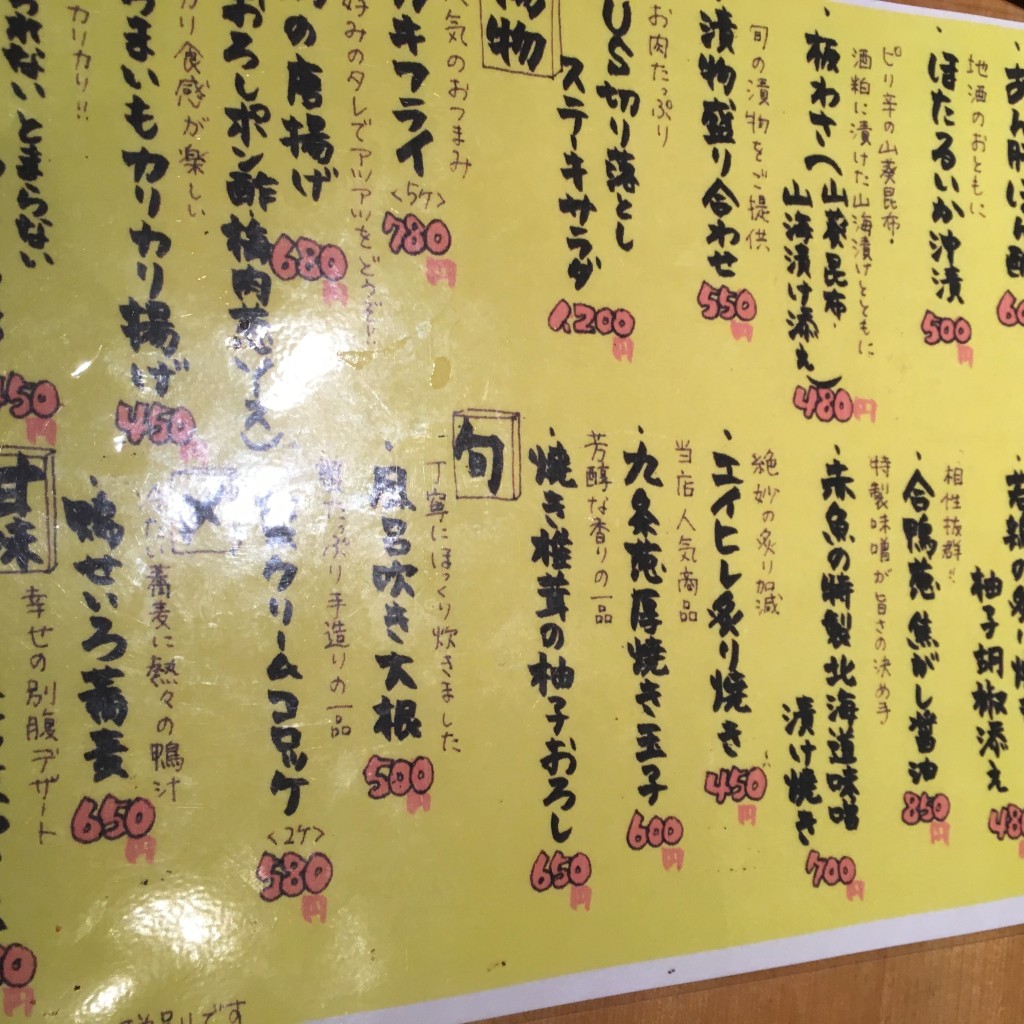 地酒のおともに
ほたるいか沖漬
500円
ピリ辛の山葵昆布・
酒粕に漬けた山海漬けとともに
・板わさ(山葵昆布・
山海漬け添え)
480円
旬の漬物をご提供
漬物盛り合わせ
550円
お肉たっぷり
US切り落とし
ステーキサラダ
1200円
物
人気のおつまみ
カキフライ
<5ケ>
780円
好みのタレでアツアツをどうぞ
の唐揚げ
680円
おろしポン酢
カリ食感が楽しい
うまいもカリカリ揚げ
450円
カリカリ!!
られないとまらない
450円
柚子胡椒添え
480円
相性抜群!!
合鴨葱焦がし醤油
850円
特製味噌が旨さの決め手
・赤魚の特製北海道味噌
漬け焼き
700円
絶妙の炙り加減
・エイヒレ炙り焼き
450円
当店人気商品
・九条葱厚焼き玉子
600円
芳醇な香りの一品
・焼き椎茸の柚子おろし
650円
旬
丁寧にほっくり炊きました
・風呂吹き大根
500円
たっぷり手造りの一品
クリームコロッケ
<2ケ>
580円
〆
冷たい蕎麦に熱々の鴨汁
鴨せいろ蕎麦
650円
甘味
幸せの別腹デザート